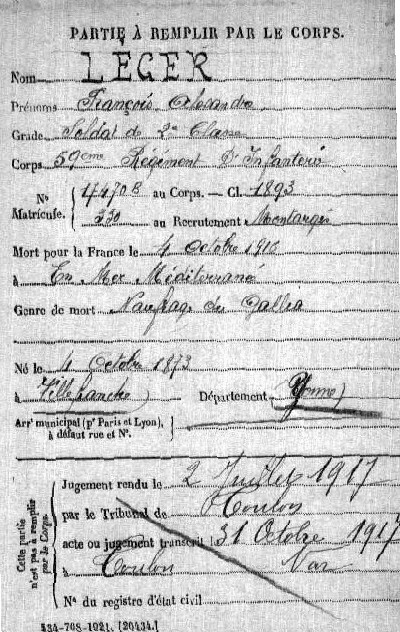 PARTIE À REMPLIR PAR LE CORPS.
Nom LÉGER
Prénoms François Alexandre
Grade Soldat de 2e Classe
Corps 59ème Régiment D'Infanterie
Nº Matricule. 17470B au Corps. — Cl. 1893
230 au Recrutement Montargis
Mort pour la France le 4 Octobre 1916
à En Mer Méditerranée
Genre de mort Naufrage du Gallia
Né le 4 Octobre 1873
à Villefranche Département Yonne
Arr' municipal (pr Paris et Lyon), à défaut rue et Nº.
Cette partie n'est pas à remplir par le Corps.
Jugement rendu le 2 Juillet 1917
par le Tribunal de Toulon
acte ou jugement transcrit 31 Octobre 1917
à Toulon Var
Nº du registre d'état civil
534-708-1921. [26434.]